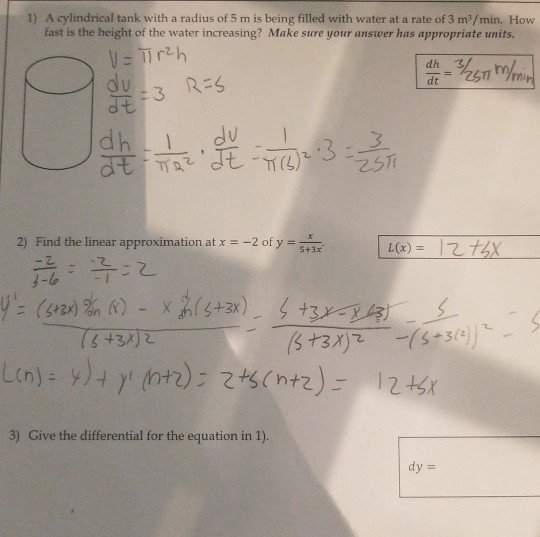 1) A cylindrical tank with a radius of 5 m is being filled with water at a rate of 3 m³/min. How
fast is the height of the water increasing? Make sure your answer has appropriate units.
V = πr²h
dv/dt = 3 R=5
dh/dt = 3/25π m/min
dh/dt = 1/πR² · dv/dt = 1/π(5)² · 3 = 3/25π
2) Find the linear approximation at x = −2 of y = x/5+3x.
L(x) = 12+5X
-2/5-6 = -2/-1 = 2
y' = (5+3x) d/dn (x) - x d/dn (5+3x)/(5+3x)² = 5+3x-x(3)/(5+3x)² = 5/(5+3(2))² = 5
L(n) = y) + y' (n+2) = 2+5(n+2) = 12+5x
3) Give the differential for the equation in 1).
dy =